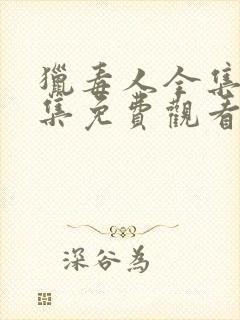 獵毒人全集
集免費觀看
深谷為